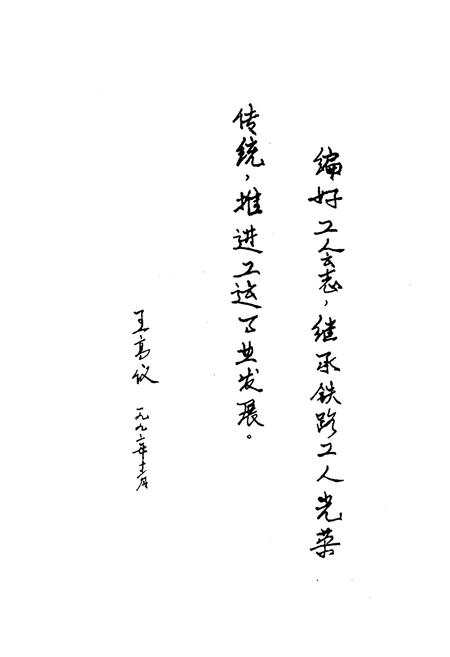 编好工会志，继承铁路工人光荣
传统，推进工运事业发展。
王高仪
一九九二年十二月